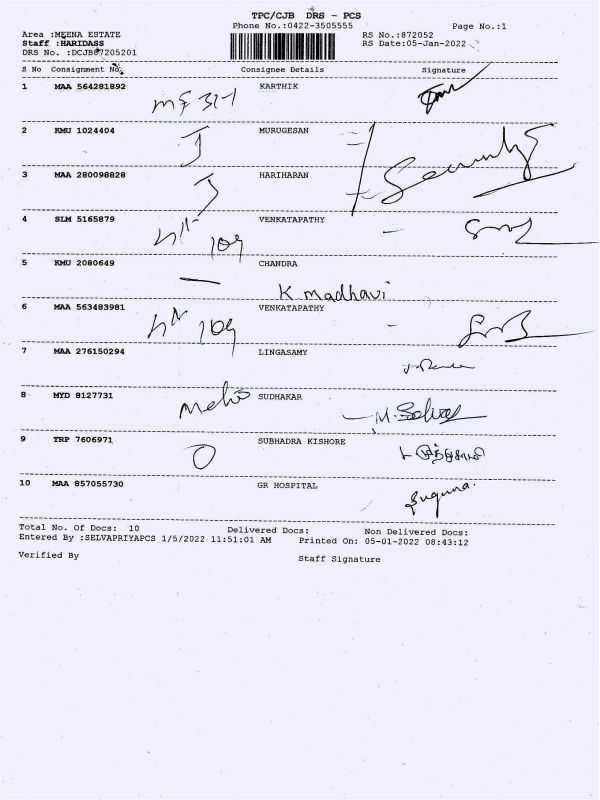 TPC/CJB DRS - PCS
Phone No.:0422-3505555
Page No.:1
Area :MEENA ESTATE
Staff :HARIDASS
DRS No. :DCJB67205201
RS No.:872052
RS Date:05-Jan-2022
S No Consignment No. Consignee Details Signature
1 MAA 564281892 KARTHIK
2 KMU 1024404 MURUGESAN
J
Security
3 MAA 280098828 HARIHARAN
J
4 SLM 5165879 VENKATAPATHY
109
5 KMU 2080649 CHANDRA
K madhavi
6 MAA 563483981 VENKATAPATHY
109
7 MAA 276150294 LINGASAMY
8 MYD 8127731 SUDHAKAR
M. Selvaraj
9 TRP 7606971 SUBHADRA KISHORE
10 MAA 857055730 GR HOSPITAL
Suguna.
Total No. Of Docs: 10 Delivered Docs: Non Delivered Docs:
Entered By :SELVAPRIYAPCS 1/5/2022 11:51:01 AM Printed On: 05-01-2022 08:43:12
Verified By Staff Signature